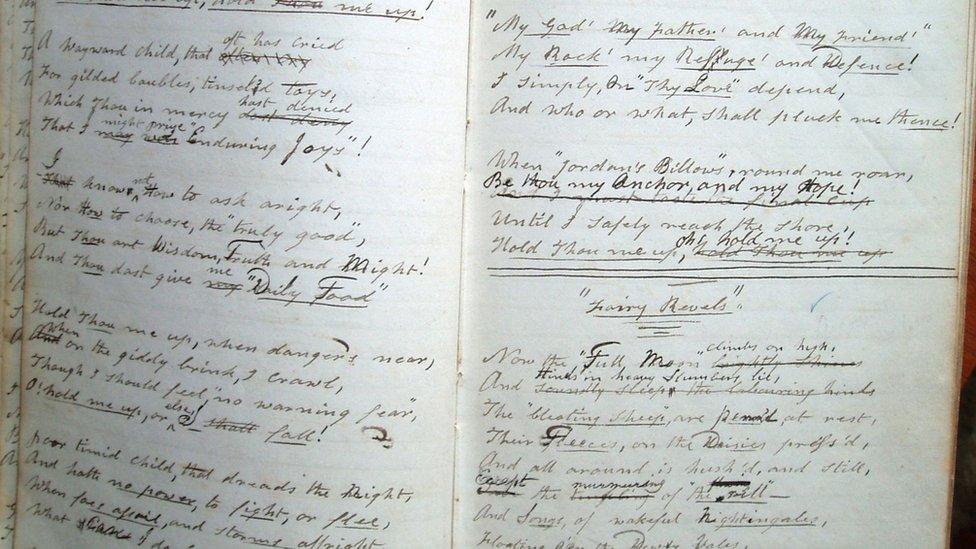 hold Thou me up!
A wayward child, that oft has cried
For gilded baubles, tinsel'd toys,
Which Thou in mercy hast denied
That I might prize "Enduring Joys"!
I know not How to ask aright,
Nor How to choose, the "truly good",
But Thou art Wisdom, Truth and Might!
And Thou dost give me "Daily Food"
Hold Thou me up, when danger's near,
When on the gidely brink, I crawl,
Though I should feel, "no warning fear",
O! hold me up, or else I fall!
Poor timid child, that dreads the Night,
And hath no power, to fight, or flee,
When foes assail, and storms affright
What can I do
"My God! My Father! and My Friend!"
My Rock! my Reffuge! and Defence!
I simply, On "Thy Love" depend,
And who or what, shall pluck me thence!
When "Jordan's Billows", round me roar,
Be thou my Anchor, and my Hope!
Until I safely reach the shore,
Hold Thou me up, Oh, hold me up!
"Fairy Revels"
Now the "Full Moon" climbs on high,
And Hinds in heavy Slumbers lie,
The "bleating sheep", are penn'd, at rest,
Their Fleeces, on the Daisies press'd,
And all around, is hush'd, and still,
Except the murmuring of "the rill" —
And Songs, of wakeful Nightingales,
Floating o'er the Dewy Vales,